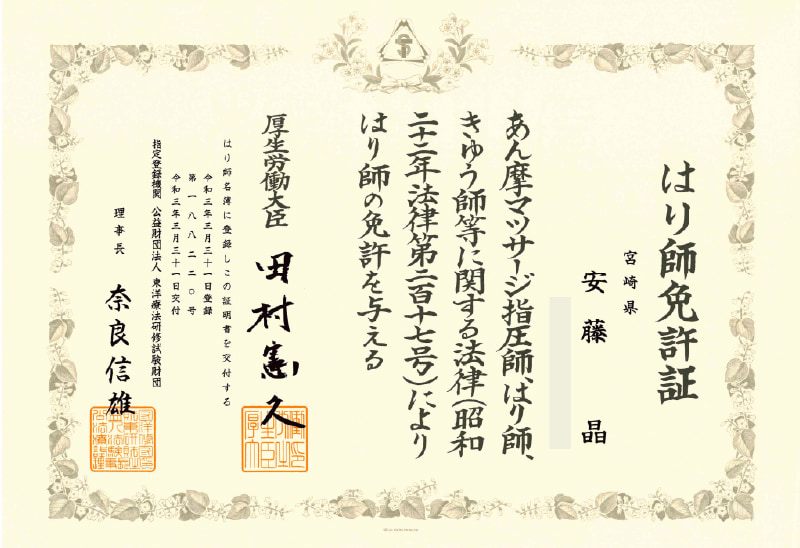 はり師免許証
宮崎県
安藤 晶
あん摩マツサージ指圧師、はり師、
きゆう師等に関する法律(昭和
二十二年法律第二百十七号)により
はり師の免許を与える
厚生労働大臣 田村憲久
はり師名簿に登録しこの証明書を交付する
令和三年三月三十一日登録
第一八八二二〇号
令和三年三月三十一日交付
指定登録機関 公益財団法人 東洋療法研修試験財団
理事長 奈良信雄